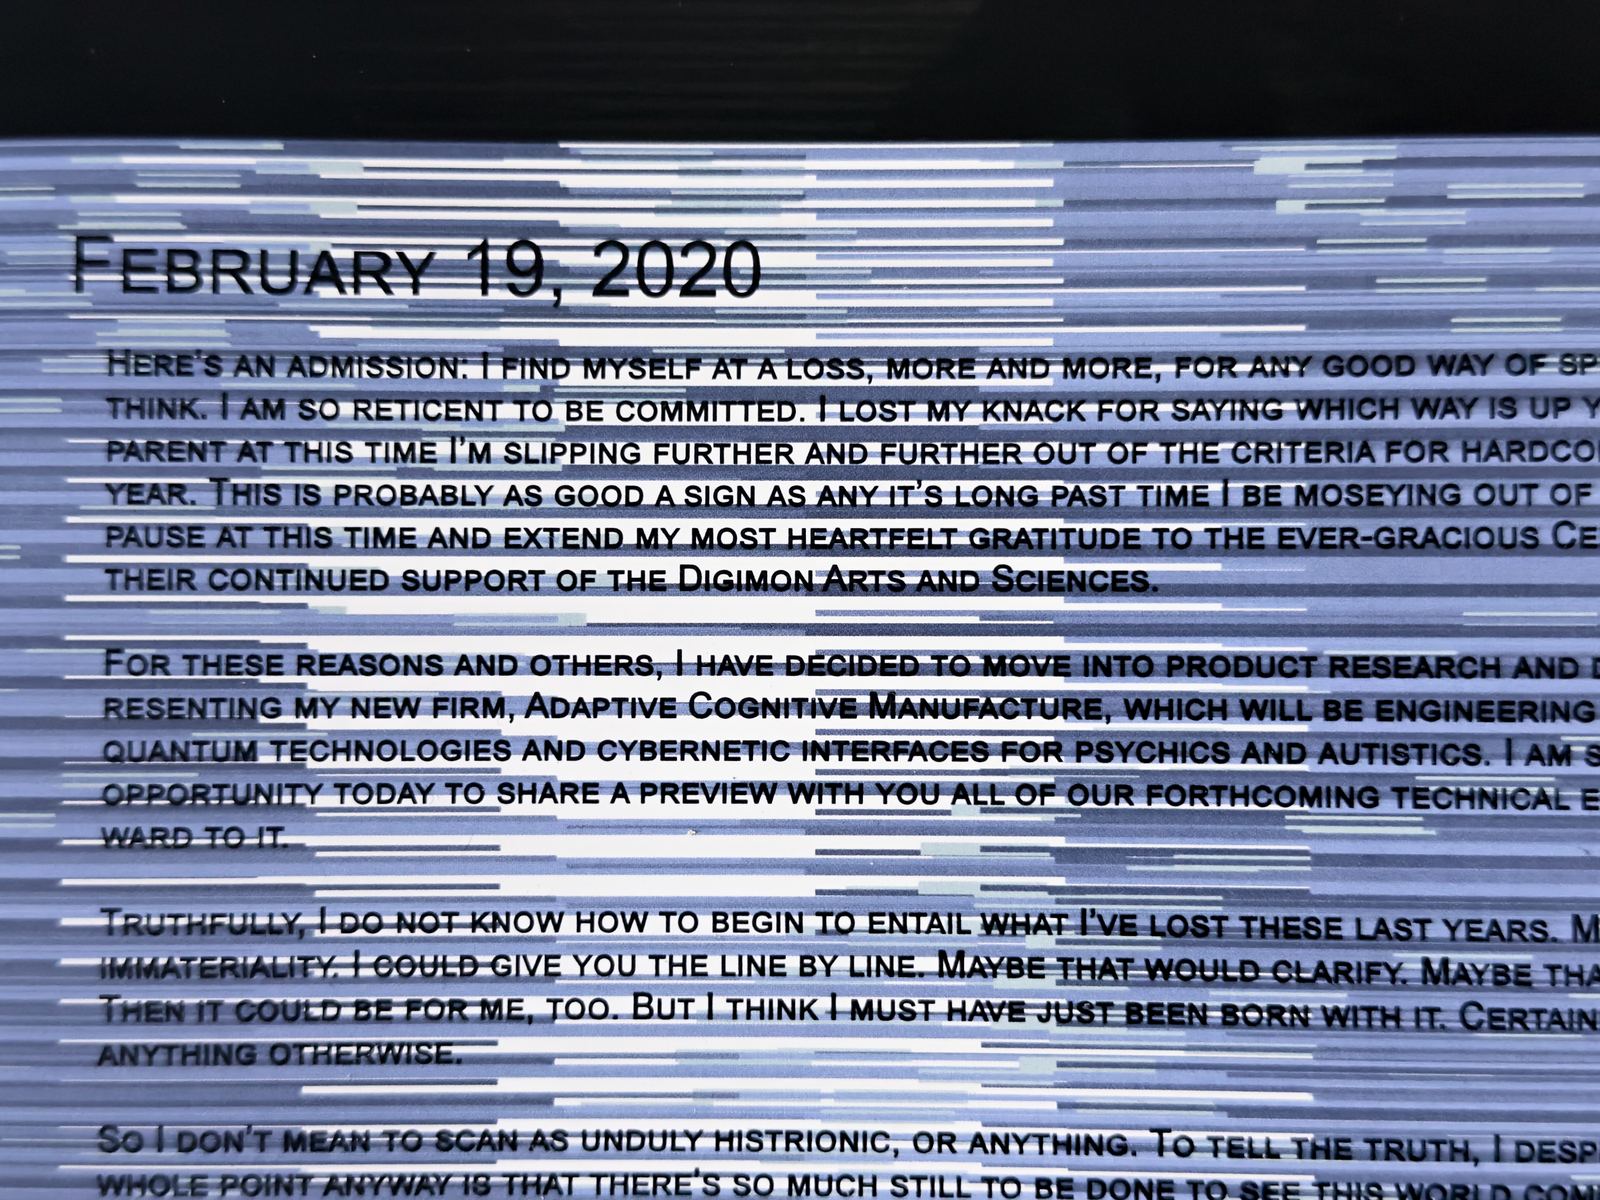 February 19, 2020
Here's an admission: I find myself at a loss, more and more, for any good way of
think. I am so reticent to be committed. I lost my knack for saying which way is up
parent at this time I'm slipping further and further out of the criteria for
year. This is probably as good a sign as any it's long past time I be moseying out of
pause at this time and extend my most heartfelt gratitude to the ever-gracious
their continued support of the Digimon Arts and Sciences.
For these reasons and others, I have decided to move into product research and
resenting my new firm, Adaptive Cognitive Manufacture, which will be engineering
quantum technologies and cybernetic interfaces for psychics and autistics. I am
opportunity today to share a preview with you all of our forthcoming technical
ward to it.
Truthfully, I do not know how to begin to entail what I've lost these last years.
immateriality. I could give you the line by line. Maybe that would clarify. Maybe
Then it could be for me, too. But I think I must have just been born with it.
anything otherwise.
So I don't mean to scan as unduly histrionic, or anything. To tell the truth, I
whole point anyway is that there's so much still to be done to see this world